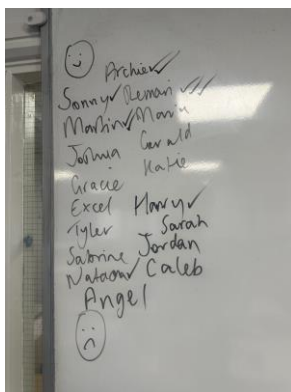 Archie ✓✓
Sonny ✓ Remari ✓✓✓
Martin ✓ Manu
Joshua Gerald
Gracie Katie
Excel Harry ✓
Tyler Sarah
Sabrine Jordan
Caleb
Angel